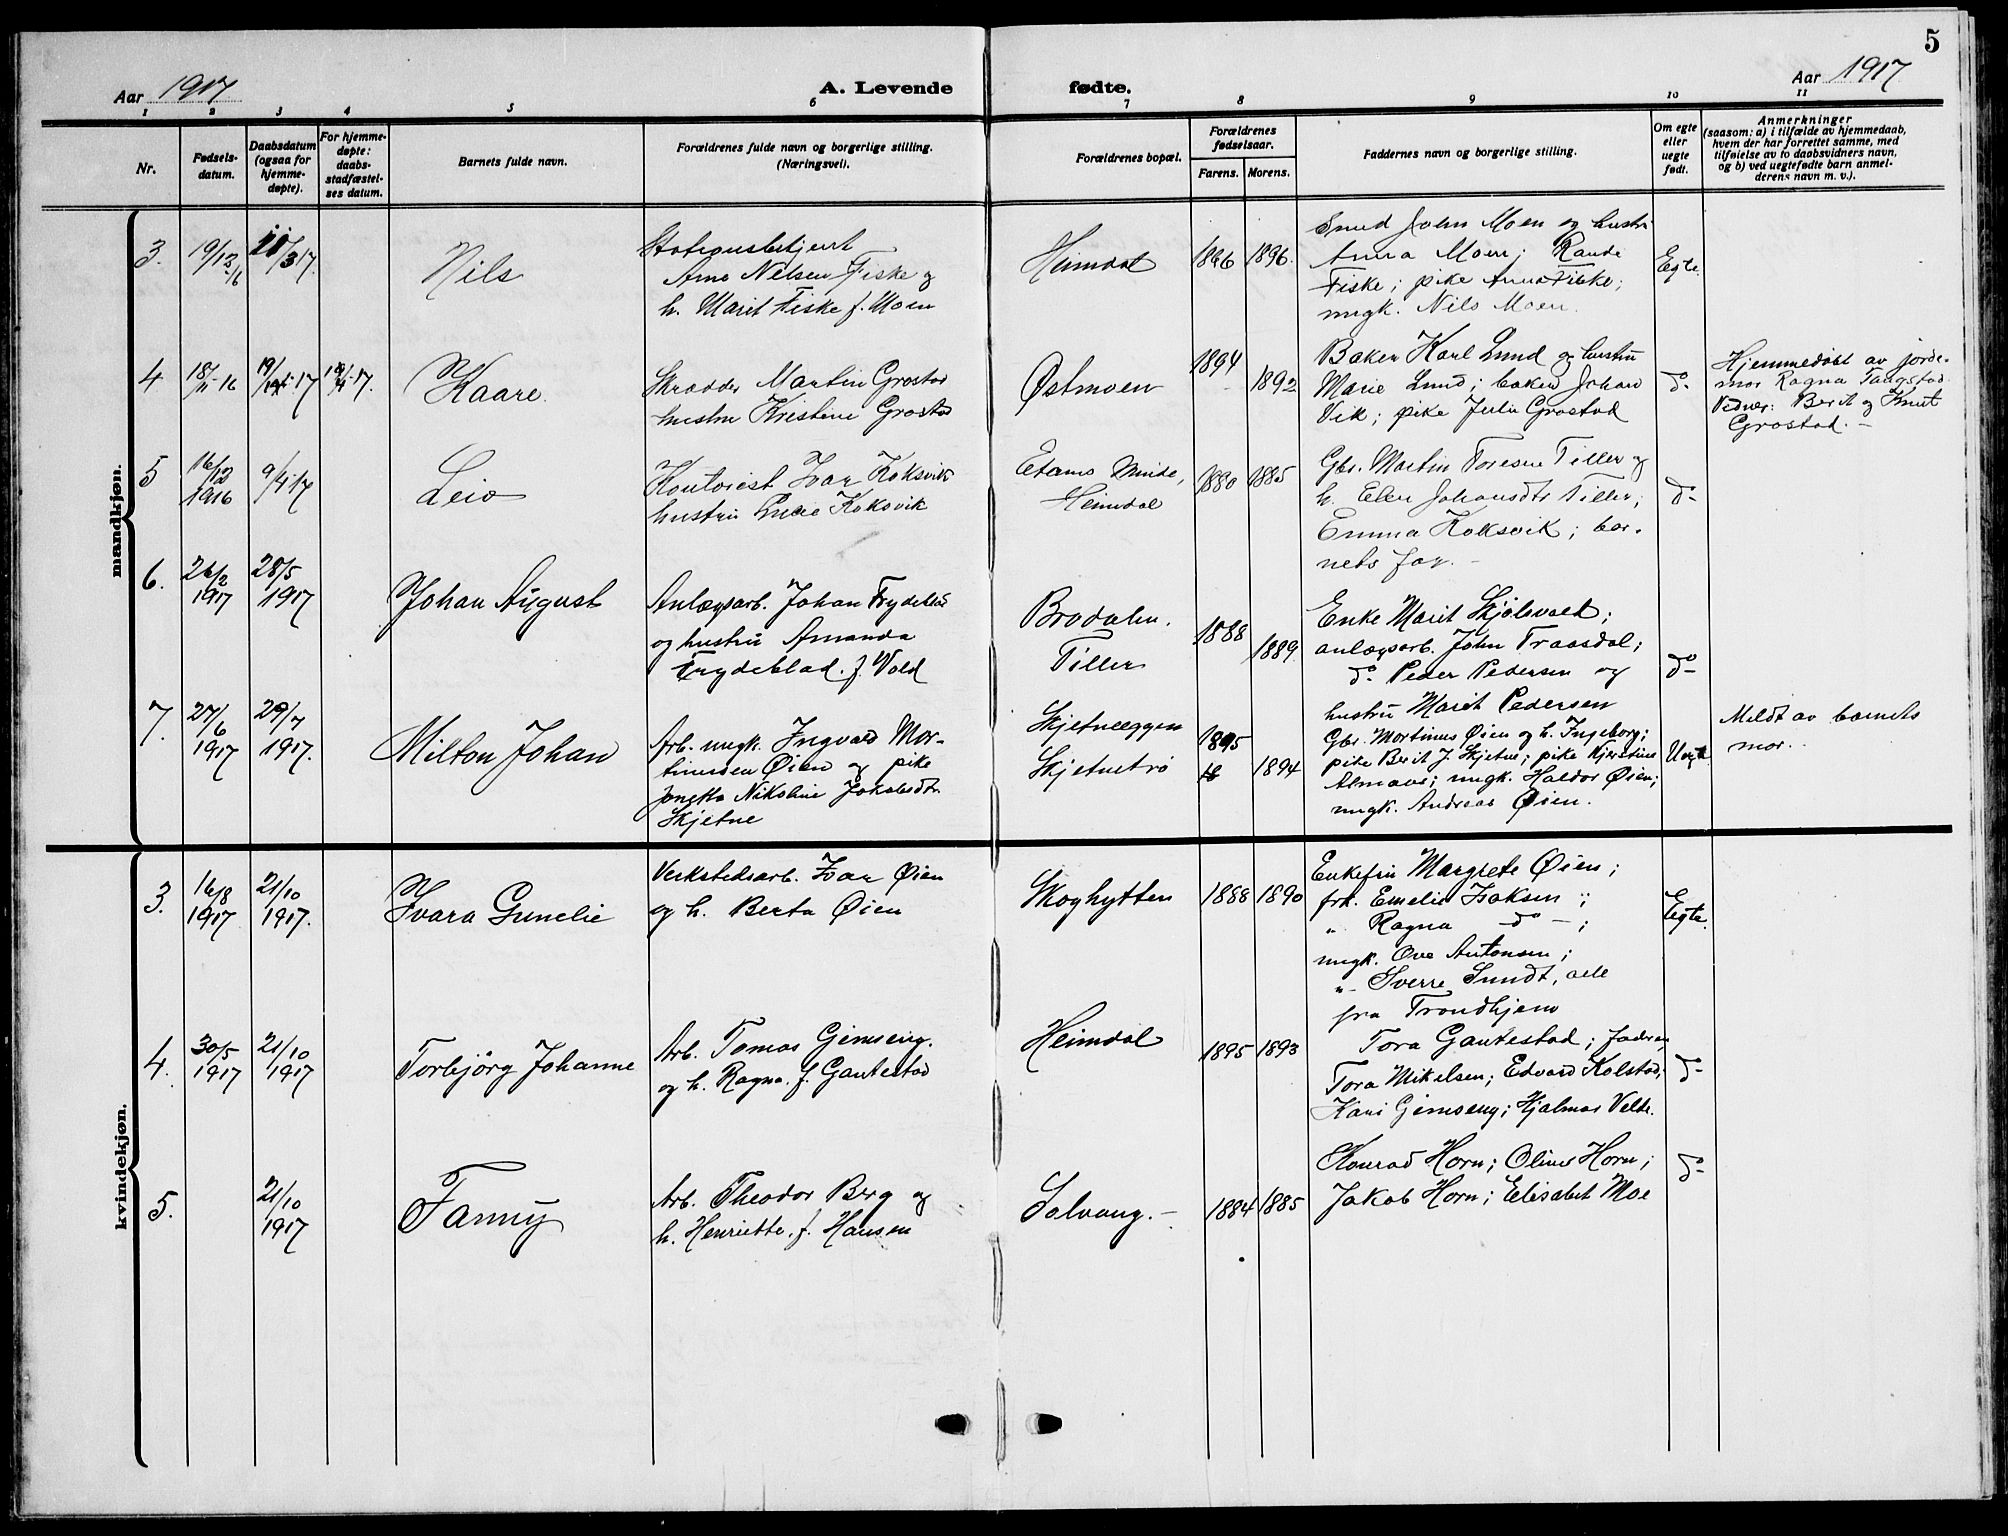 5
Aar 1917
A. Levende fødte.
Aar 1917
1 2 3 4 5 6 7 8 9 10 11
Nr.
Fødsels-
datum.
Daabsdatum
(ogsaa for
hjemme-
døpte).
For hjemme-
døpte:
daabs-
stadfæstel-
ses datum.
Barnets fulde navn.
Forældrenes fulde navn og borgerlige stilling.
(Næringsvei).
Forældrenes bopæl.
Forældrenes
fødselsaar.
Farens. Morens.
Faddernes navn og borgerlige stilling.
Om egte
eller
uegte
født.
Anmerkninger
(saasom: a) i tilfælde av hjemmedaab,
hvem der har forrettet samme, med
tilføielse av to daabsvidners navn,
og b) ved uegtefødte barn anmel-
derens navn m. v.).
mandkjøn.
3.
19/12
16
11/3 17.
Nils
Arne Nelsen Fiske og
h. Marit Fiske f. Moen
Heimdal
1896.
Smed John Moen og hustru
Anna Moen; Rande
Fiske; pike Anna Fiske;
ungk. Nils Moen.
Egte.
4
18/11 16
17
17.
Kaare.
Skrædder Martin Grostad
hustru Kristene Grostad
Østmoen
1894
1892
Baker Karl Lund og hustru
Marie Lund; baker Johan
Vik; pike Julie Grostad
do
Hjemmedøbt av jorde-
mor Ragna Taugstad.
Vidner: Berit og Knut
Grostad.
5
16/12
1916
9/4 17
Leiv
Kontorist Ivar Koksvik
hustru Koksvik
Minde,
Heimdal
1880
1885
Gbr. Martin Toresen Tiller og
h. Elen Johansdtr Tiller;
Emma Koksvik; bar-
nets far.
do
6.
26/2
1917
28/5
1917
Johan August
Anlægsarb. Johan Frydeblad
og hustru Amanda
Frydeblad. f. Vold
Brodalen.
Tiller
1888
1889.
Enke Marit Skjølsvold;
anlægsarb. John Traasdal;
do Peder Pedersen og
hustru Marit Pedersen
do
7.
27/6
1917
29/7
1917.
Milton Johan
Arb. ungk. Ingvald Mor-
tinsden Øien og pike
Jonetta Nikoline Jakobsdtr
Skjetne
Skjetneeggen
Skjetnetrø
1895
1894
Gbr. Mortinus Øien og h. Ingeborg;
pike Berit J. Skjetne; pike Kjerstine
Almaas; ungk. Haldor Øien;
ungk. Andreas Øien.
Uegte
Meldt av barnets
mor.
kvindekjøn.
3.
16/8
1917
21/10
1917.
Ivara Gunelie
Verkstedsarb. Ivar Øien
og h. Berta Øien
Skoghytten
1888
1890
Enkefru Margrete Øien;
frk. Emelie Isaksen;
" Ragna do ;
ungk. Ove Antonsen;
" Sverre Sundt, alle
fra Trondhjem
Egte.
4.
30/5
1917
21/10
1917
Torbjörg Johanne
Arb. Tomas Gimseng.
og h. Ragna. f. Gautestad
Heimdal
1895
1893
Tora Gautestad;
Tora Mikelsen; Edvard Kolstad;
Kari Gimseng; Hjalmar Velte.
do
5.
21/10
1917
Fanny
Arb. Theodor Berg og
h. Henriette. f. Hansen
Solvang.
1884
1885
Konrad Horn; Oline Horn;
Jakob Horn; Elisabet Moe
do